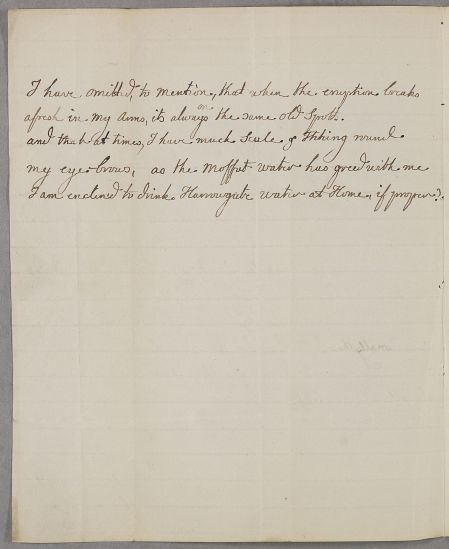 I have omitted, to mention, that when the eruption breaks
afresh in my Arms, its always on the same old Spots.
and that at times, I have much Scale & Itching round
my eye-brows, as the Moffat water has greed with me
I am enclined to drink Harrowgate water at Home, if proper?.